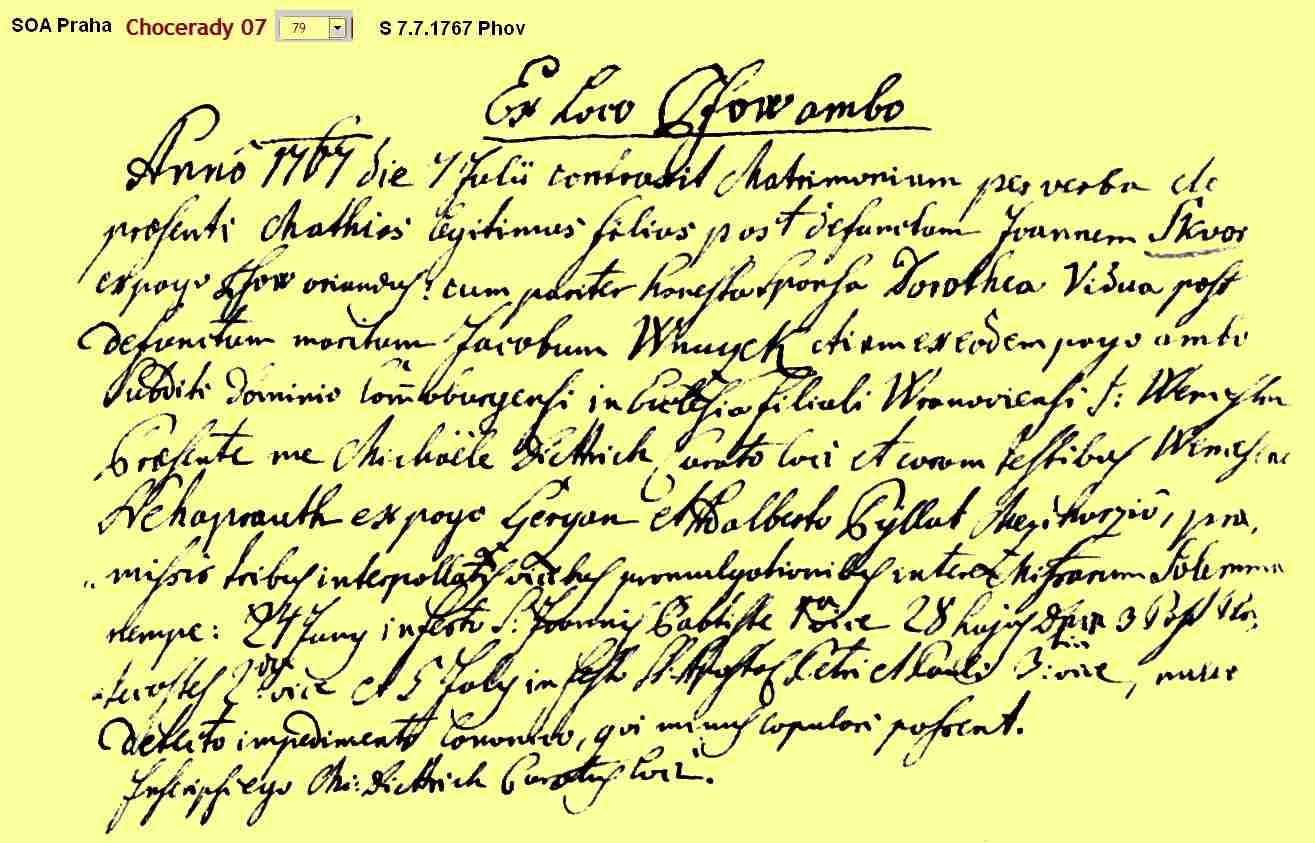 SOA Praha Chocerady 07 79 S 7.7.1767 Phov
Ex Loco Phow ambo
Anno 1767 die 7 Julii contraxit Matrimonium per verba de
præsenti Mathias legitimus filius post defunctum Joannem Skvor
ex pago Phow oriundus: cum pariter honesta Sponsa Dorothea Vidua post
defunctum maritum Jacobum etiam ex eodem pago ambo
Subditi dominio Komoburgensi in Ecclesia Filiali Wranoviensi S: Wenceslai
Præsente me Michaële Diettrich Curato loci et coram testibus Wenceslao
Nehaprauth ex pago et Adalberto Pyllat præ,
missis tribus interpollatis vicibus promulgationibus inter Missarum Solemnia
nempe: 24 Juny in festo S: Joannis Babtiste 1ma vice 28 hujus 3 Post Pen,
tecostes 2da vice et 5 July in festo Petri et Pauli 3tia vice, nullo
detecto impedimento Canonico, qvi minus copulari possent.
Mi: Diettrich Curatus loci.